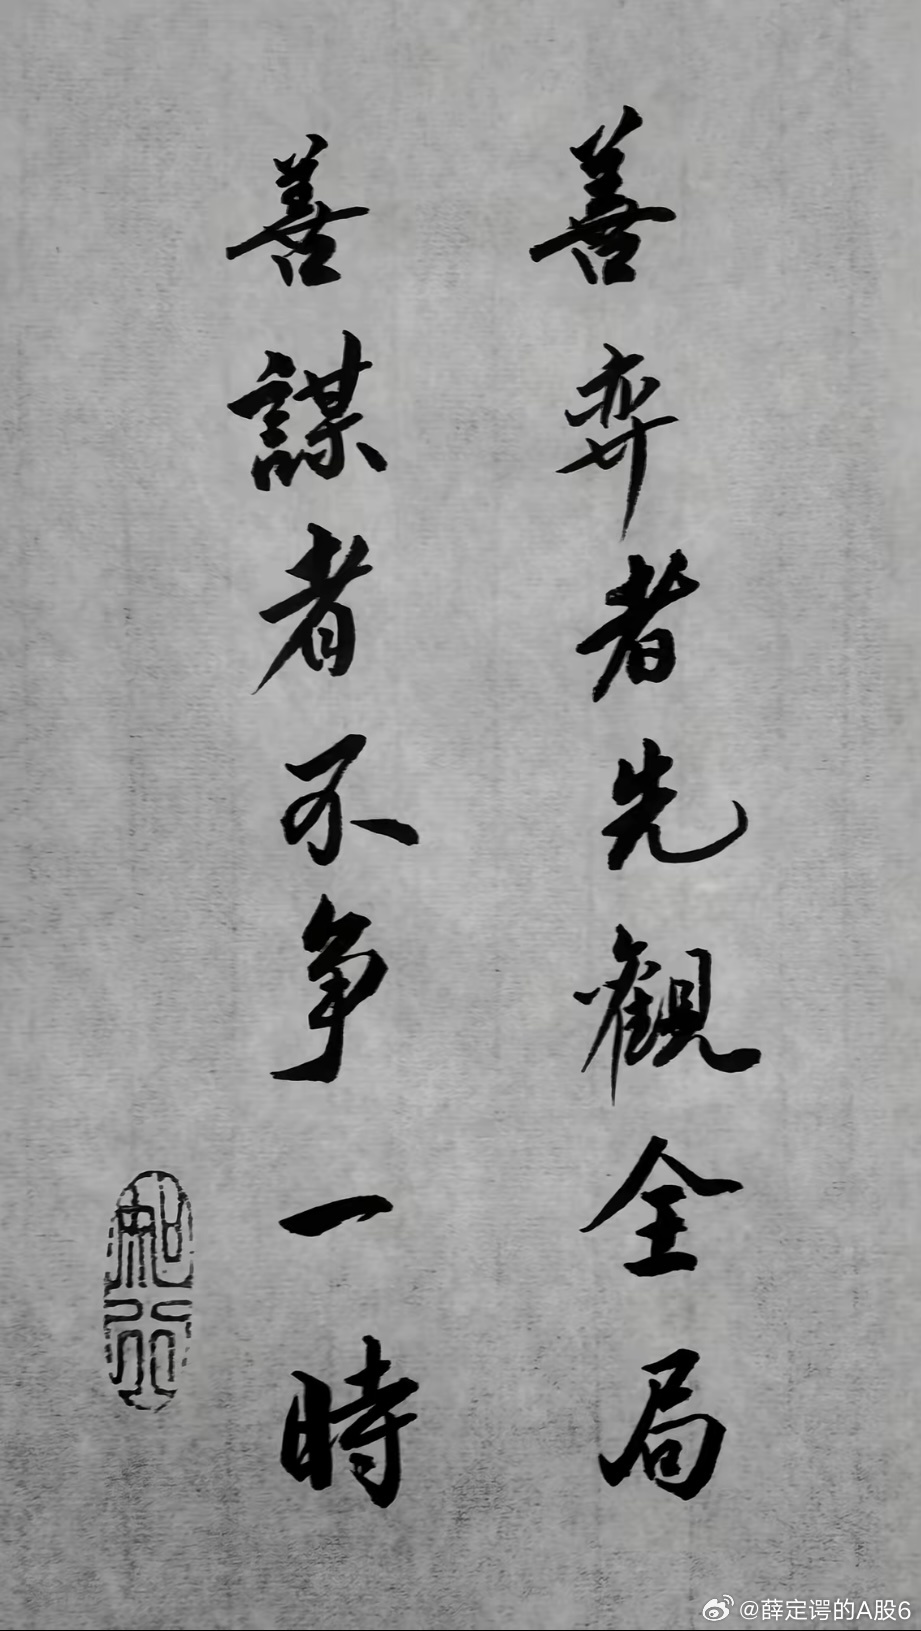 善弈者先觀全局
善謀者不争一時
知行
@薛定谔的A股6